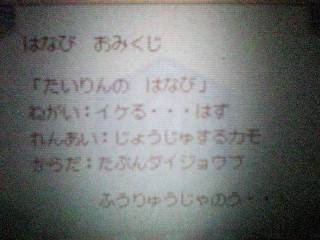 はなび　おみくじ
「たいりんの　はなび」
ねがい：イケる・・・はず
れんあい：じょうじゅするカモ
からだ：たぶんダイジョウブ
ふうりゅうじゃのう・・